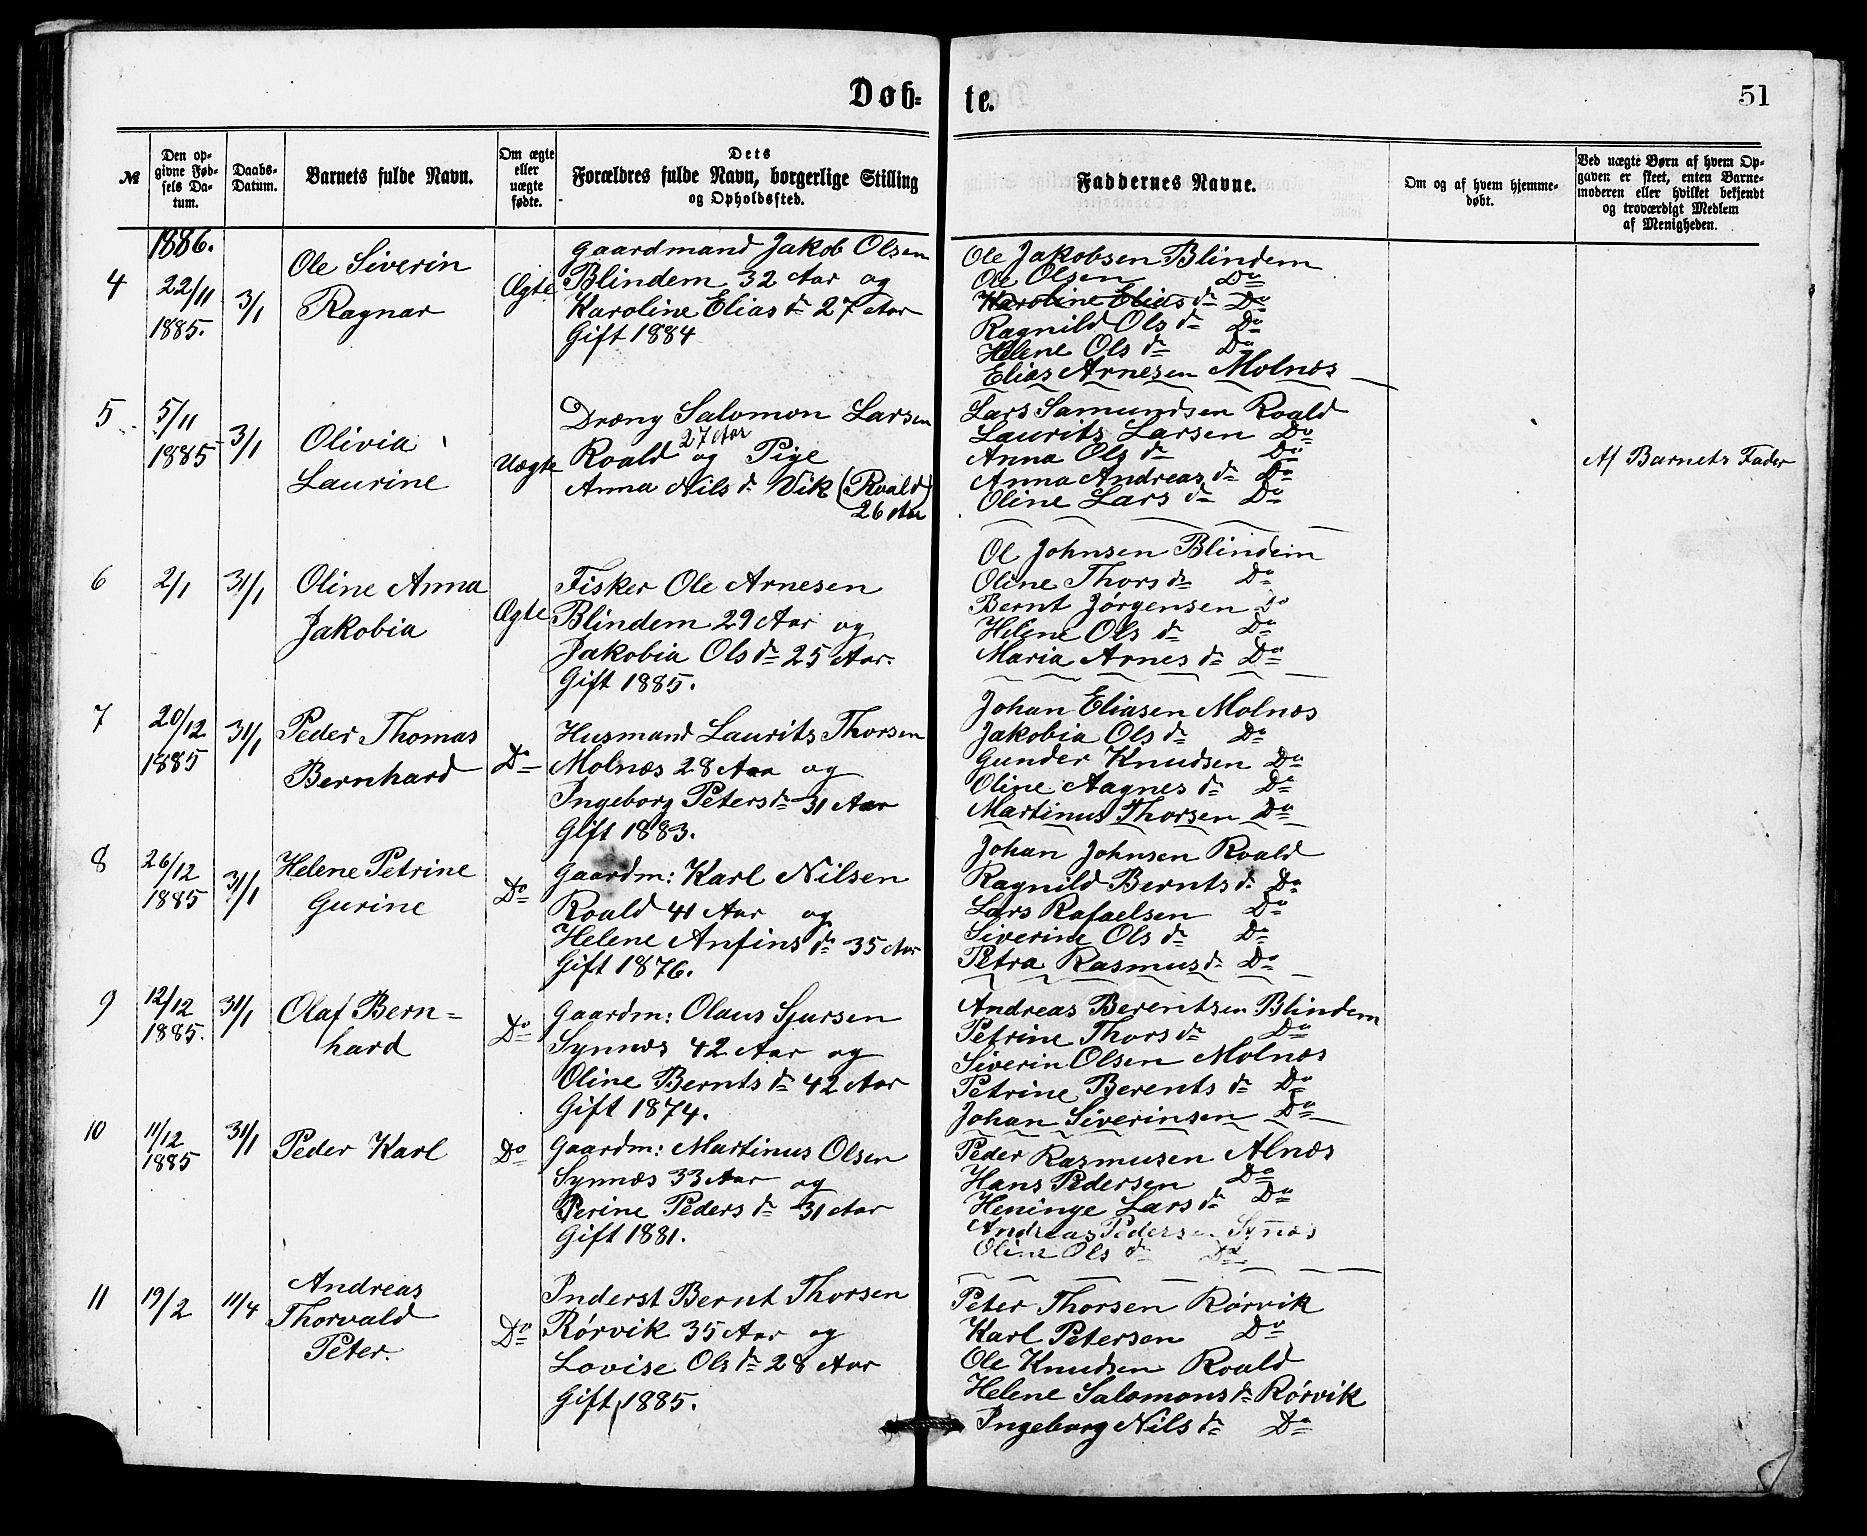 Døb-
te.
51
№
Den op-
givne Fød-
sels Da-
tum.
Daabs-
Datum.
Barnets fulde Navn.
Om ægte
eller
uægte
fødte.
Dets
Forældres fulde Navn, borgerlige Stilling
og Opholdssted.
Faddernes Navne.
Om og af hvem hjemme-
døbt.
Ved uægte Børn af hvem Op-
gaven er skeet, enten Barne-
moderen eller hvilket bekjendt
og troværdigt Medlem
af Menigheden.
1886.
4
22/11
1885.
3/1
Ole Siverin
Ragnar
Ægte
Gaardmand Jakob Olsen
Blindem 32 Aar og
Karoline Elias dr 27 Aar
Gift 1884
Ole Jakobsen Blindem
Ole Olsen Do
Karoline Elias dr Do
Ragnild Ols dr Do
Helene Ols dr Do
Elias Arnesen Molnæs
5
5/11
1885
3/1
Olivia
Laurine
Uægte
Dræng Salomon Larsen
27 Aar
Roald og Pige
Anna Nils dr Vik (Roald)
26 Aar
Lars Samundsen Roald
Laurits Larsen Do
Anna Ols dr Do
Anna Andreas dr Do
Oline Lars dr Do
Af Barnets Fader
6
2/1
31/1
Oline Anna
Jakobia
Ægte
Fisker Ole Arnesen
Blindem 29 Aar og
Jakobia Ols dr 25 Aar.
Gift 1885.
Ol Johnsen Blindem
Oline Thors dr Do
Bernt Jørgensen Do
Helene Ols dr Do
Maria Arnes dr Do
7
20/12
1885
31/1
Peder Thomas
Bernhard
Do
Husmand Laurits Thorsen
Molnæs 28 Aar og
Ingeborg Peters dr 31 Aar
Gift 1883.
Johan Eliasen Molnæs
Jakobia Ols dr Do
Gunder Knudsen Do
Oline Aagnes dr Do
Martinus Thorsen Do
8
26/12
1885
31/1
Helene Petrine
Gurine
Do
Gaardm: Karl Nilsen
Roald 41 Aar og
Helene Anfins dr 35 Aar
Gift 1876.
Johan Johnsen Roald
Ragnild Bernts dr Do
Lars Rafaelsen Do
Siverine Ols dr Do
Petra Rasmus dr Do
9
12/12
1885.
31/1
Olaf Bern=
hard
Do
Gaardm: Olaus Sjursen
Synnæs 42 Aar og
Oline Bernts dr 42 Aar
Gift 1874.
Andreas Berentsen Blindem
Petrine Thors dr Do
Siverin Olsen Molnæs
Petrine Berents dr Do
Johan Siverinsen Do
10
11/12
1885
31/1
Peder Karl
Do
Gaardm: Martinus Olsen
Synnæs 33 Aar og
Perine Peders dr 31 Aar
Gift 1881.
Peder Rasmusen Alnæs
Hans Pedersen Do
Heninge Lars dr Do
Andreas Pedersen Syn̄æs
Oline Ols dr Do
11
19/2
11/4
Andreas
Thorvald
Peter.
Do
Inderst Bernt Thorsen
Rørvik 35 Aar og
Lovise Ols dr 28 Aar
Gift 1885.
Peter Thorsen Rørvik
Karl Petersen Do
Ole Knudsen Roald
Helene Salomons dr Rørvik
Ingeborg Nils dr Do